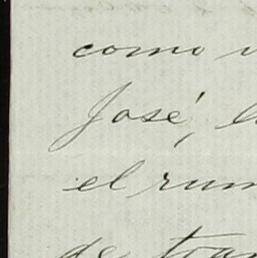 como
José,
el rum
de tran